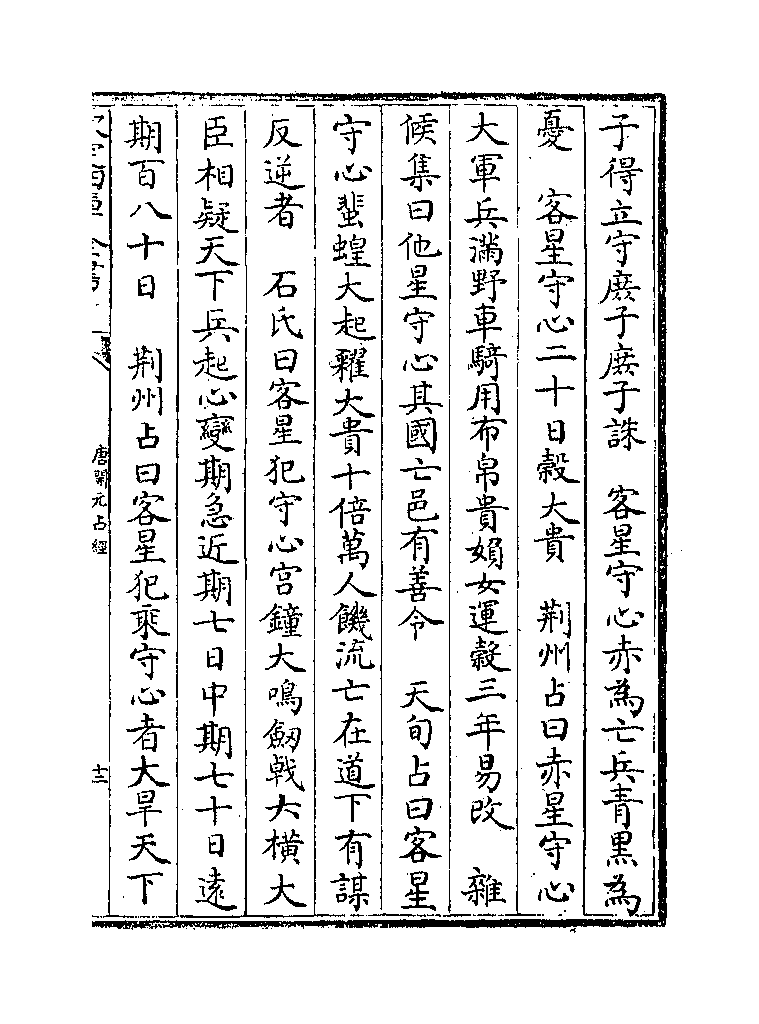 子得立守庶子庶子誅　客星守心赤為亡兵青黒為
憂　客星守心二十日糓大貴　荆州占曰赤星守心
大軍兵滿野車騎用布帛貴媍女運糓三年易改　雜
候集曰他星守心其國亡邑有善令　天旬占曰客星
守心蜚蝗大起糴大貴十倍萬人饑流亡在道下有謀
反逆者　石氏曰客星犯守心宫鐘大鳴劒戟大横大
臣相疑天下兵起心變期急近期七日中期七十日遠
期百八十日　荆州占曰客星犯乘守心者大旱天下
唐開元占經
十二